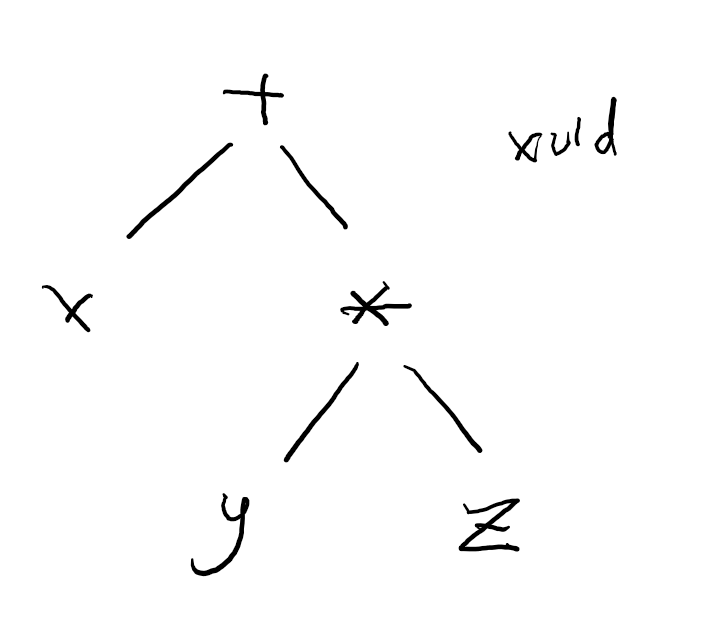 +
xuld
x *
y z